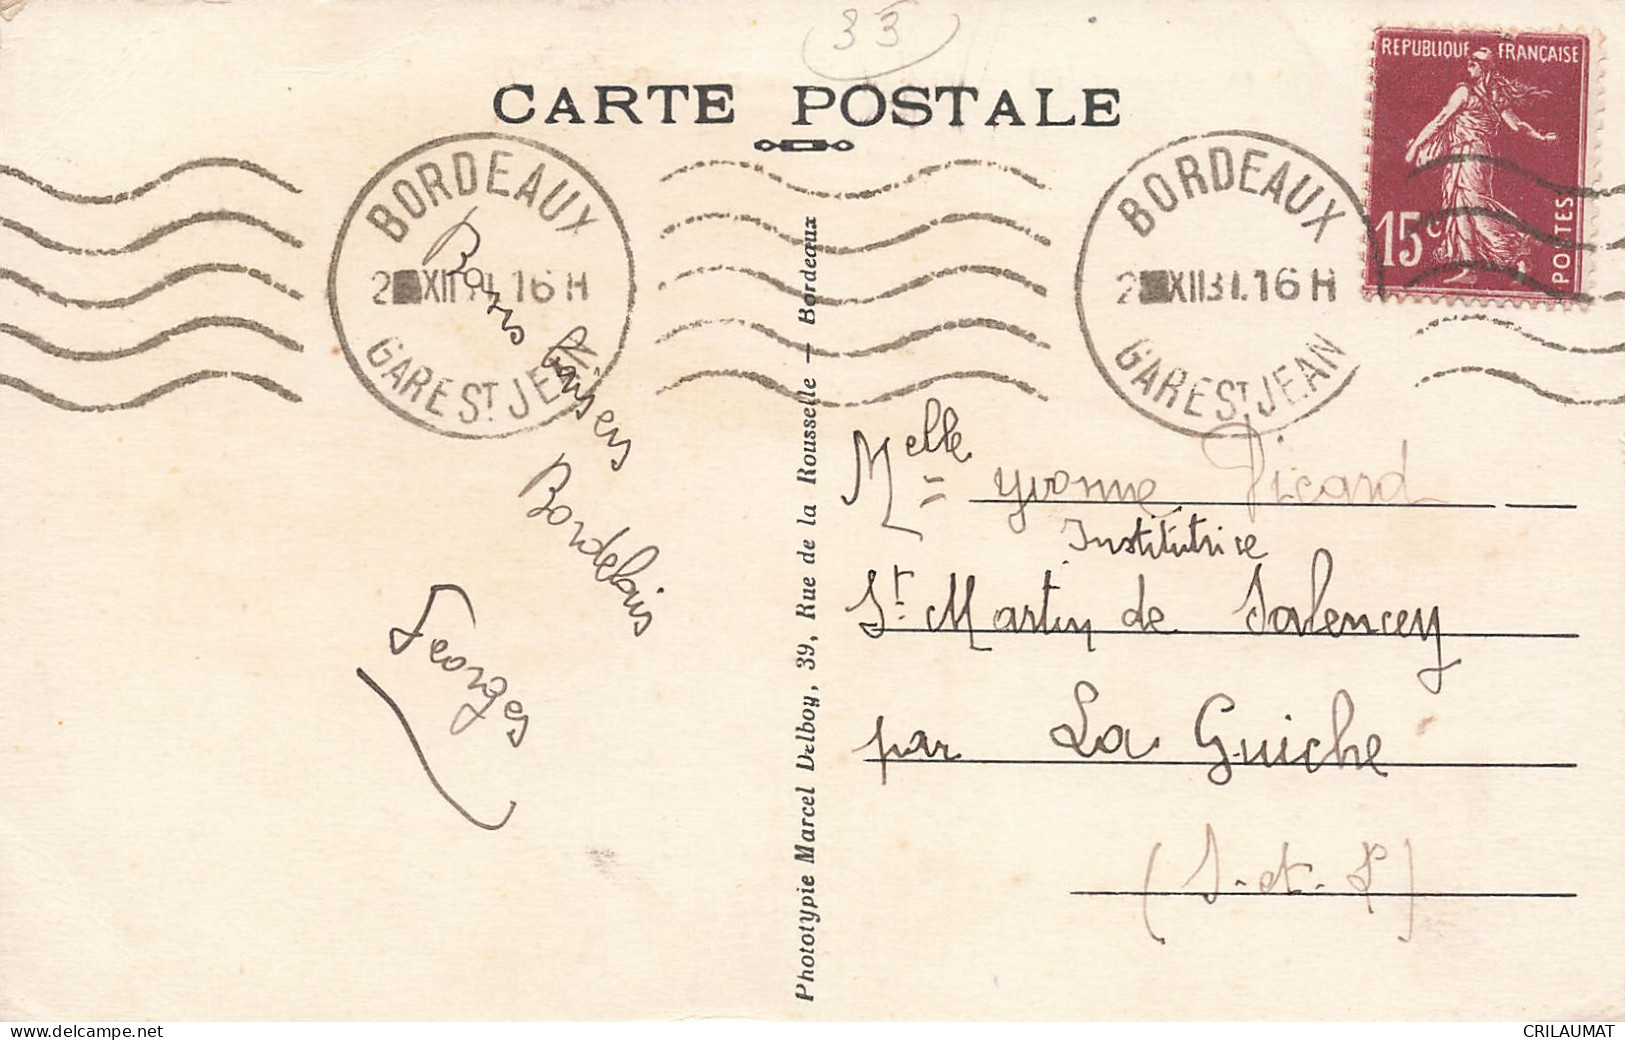 33
CARTE POSTALE
REPUBLIQUE FRANÇAISE
15c
POSTES
BORDEAUX
2 XII 31 16 H
GARE ST JEAN
BORDEAUX
2 XII 31 16 H
GARE ST JEAN
Bons
Baisers
Bordelais
Georges
Phototypie Marcel Delboy, 39, Rue de la Rousselle — Bordeaux
Melle Yvonne Picard
Institutrice
St Martin de Salencey
par La Guiche
(S.-et-L)
www.delcampe.net
CRILAUMAT